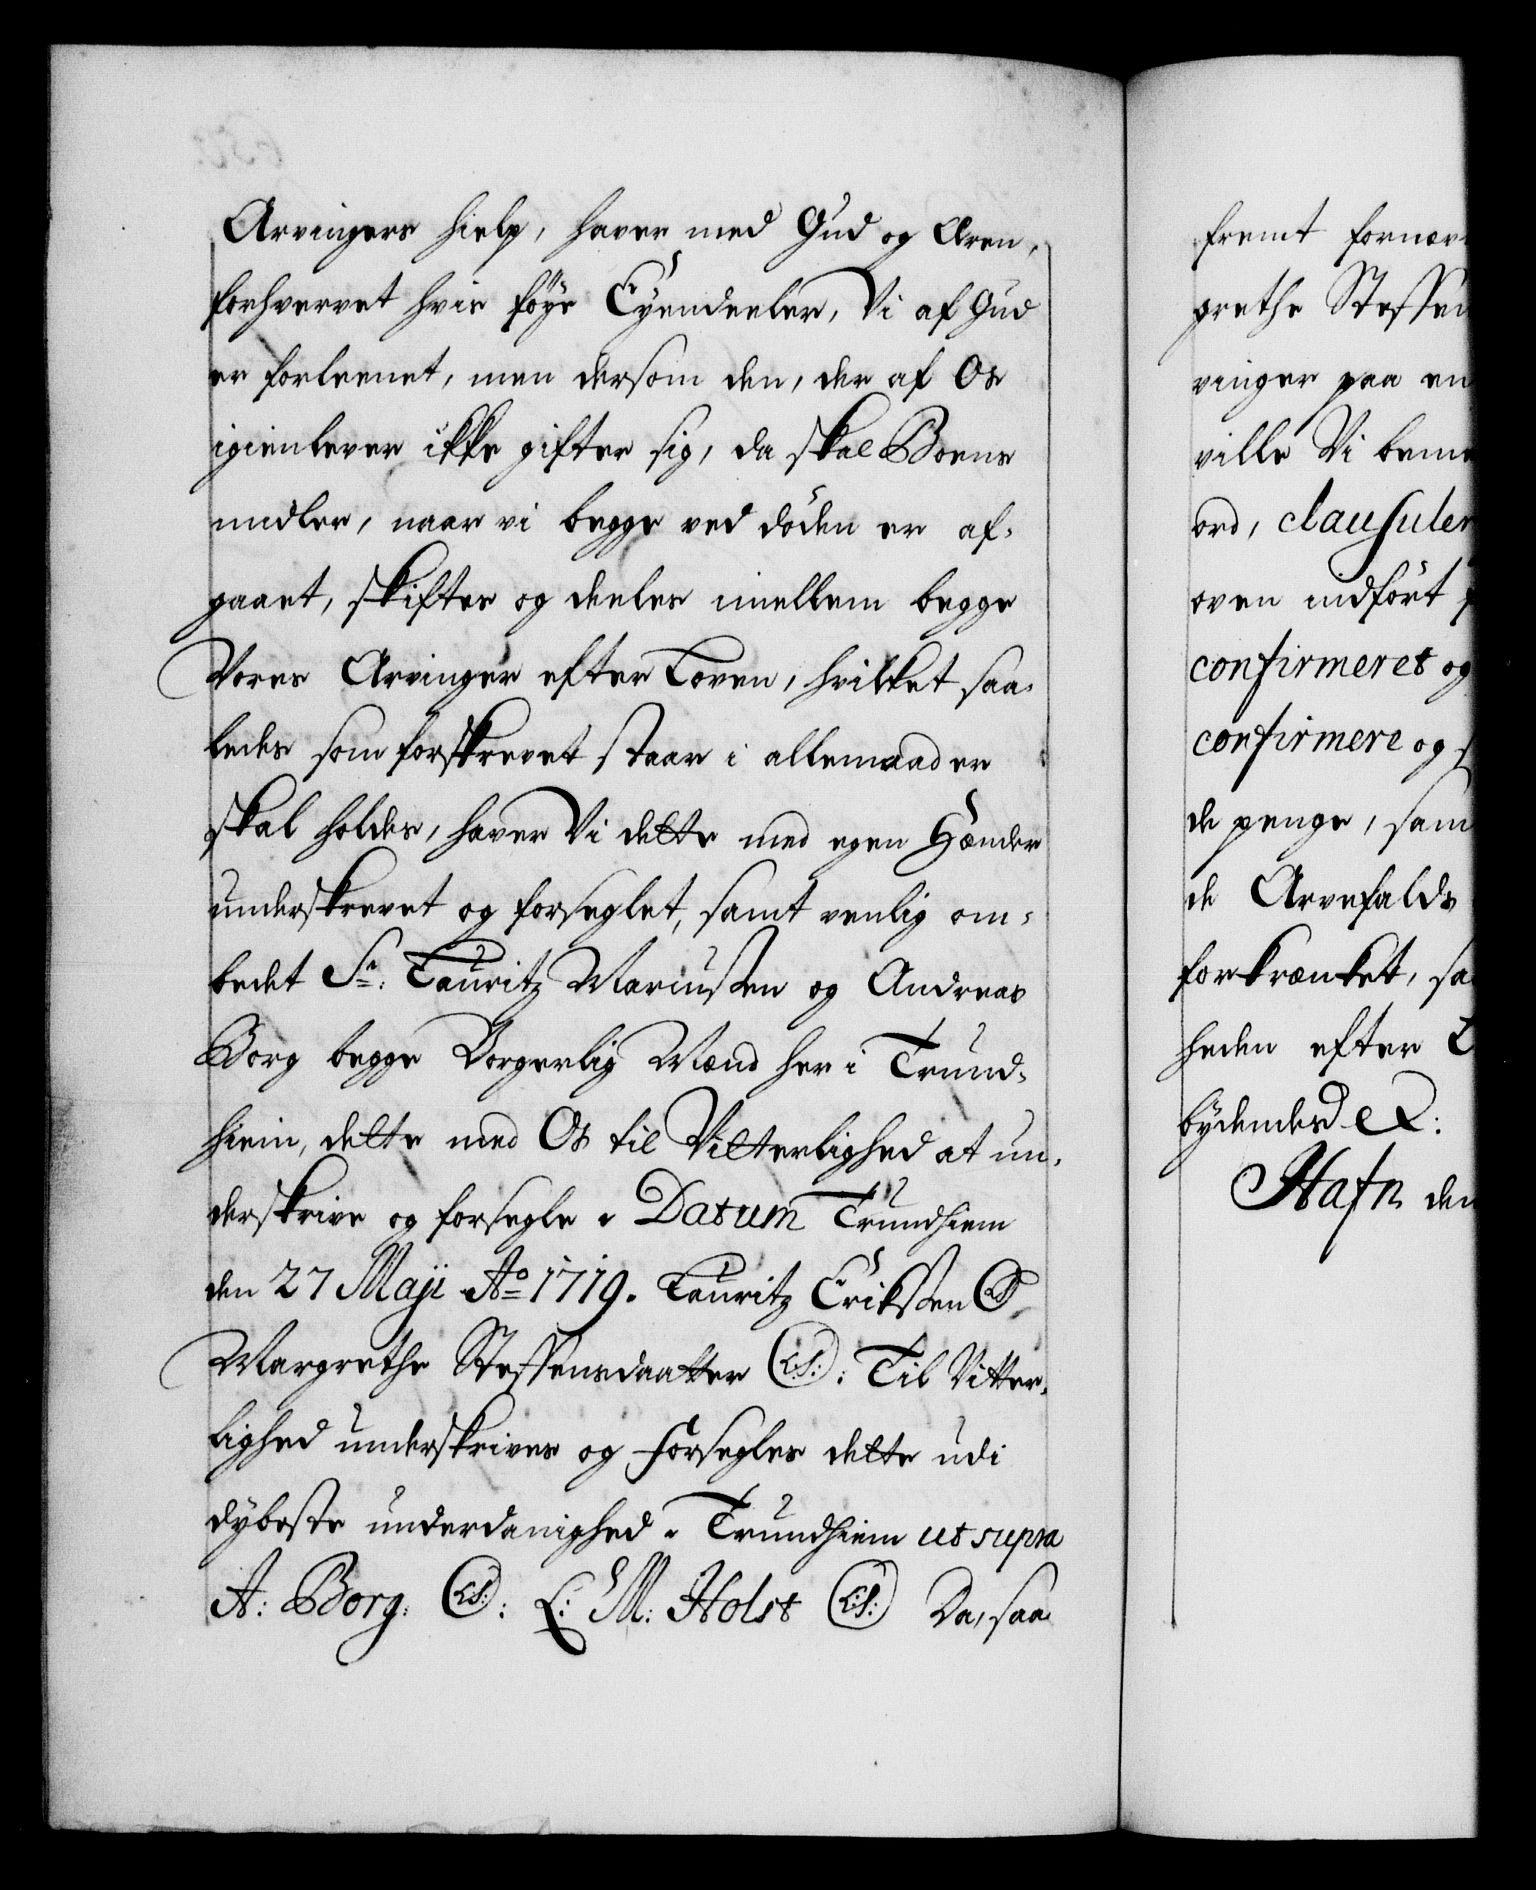 Arvingers hielp, haver med Gud og Æren,
forhvervet hvis føye Eyendeeler, Vi af Gud
er forleenet, men dersom den, der af Os
igienlever ikke gifter sig, da skal Boens
midler, naar vi begge ved døden er af-
gaaet, skiftes og deeles imellem begge
Vores Arvinger efter Loven, hvilket saa-
ledes som forskrevet staar i allemaader
skal holdes, haver Vi dette med egen Hænder
underskrevet og forseglet, samt venlig om-
bedet Sr: Lauritz Mariussen og Andreas
Borg begge Borgerlig Mænd her i Trund-
hiem, dette med Os til Vitterlighed at un-
derskrive og forsegle. Datum Trundhiem
den 27 Maji Ao 1719. Lauritz Erikssen LS
Margrethe Steffensdaatter L:S: Til Vitter-
lighed underskrives og forsegles dette udi
dybeste underdanighed. Trundhiem ut supra
A: Borg: LS: L: M: Holst L:S: Da, saa-
fremt fornæv
grethe Steffen
vinger paa en
ville Vi beme
ord, clausuler
oven indført
confirmeret og
confirmere og
de penge, sam
de Arvefalds
forkrænket, sa
heden efter L
bydendes R:
Hafn den